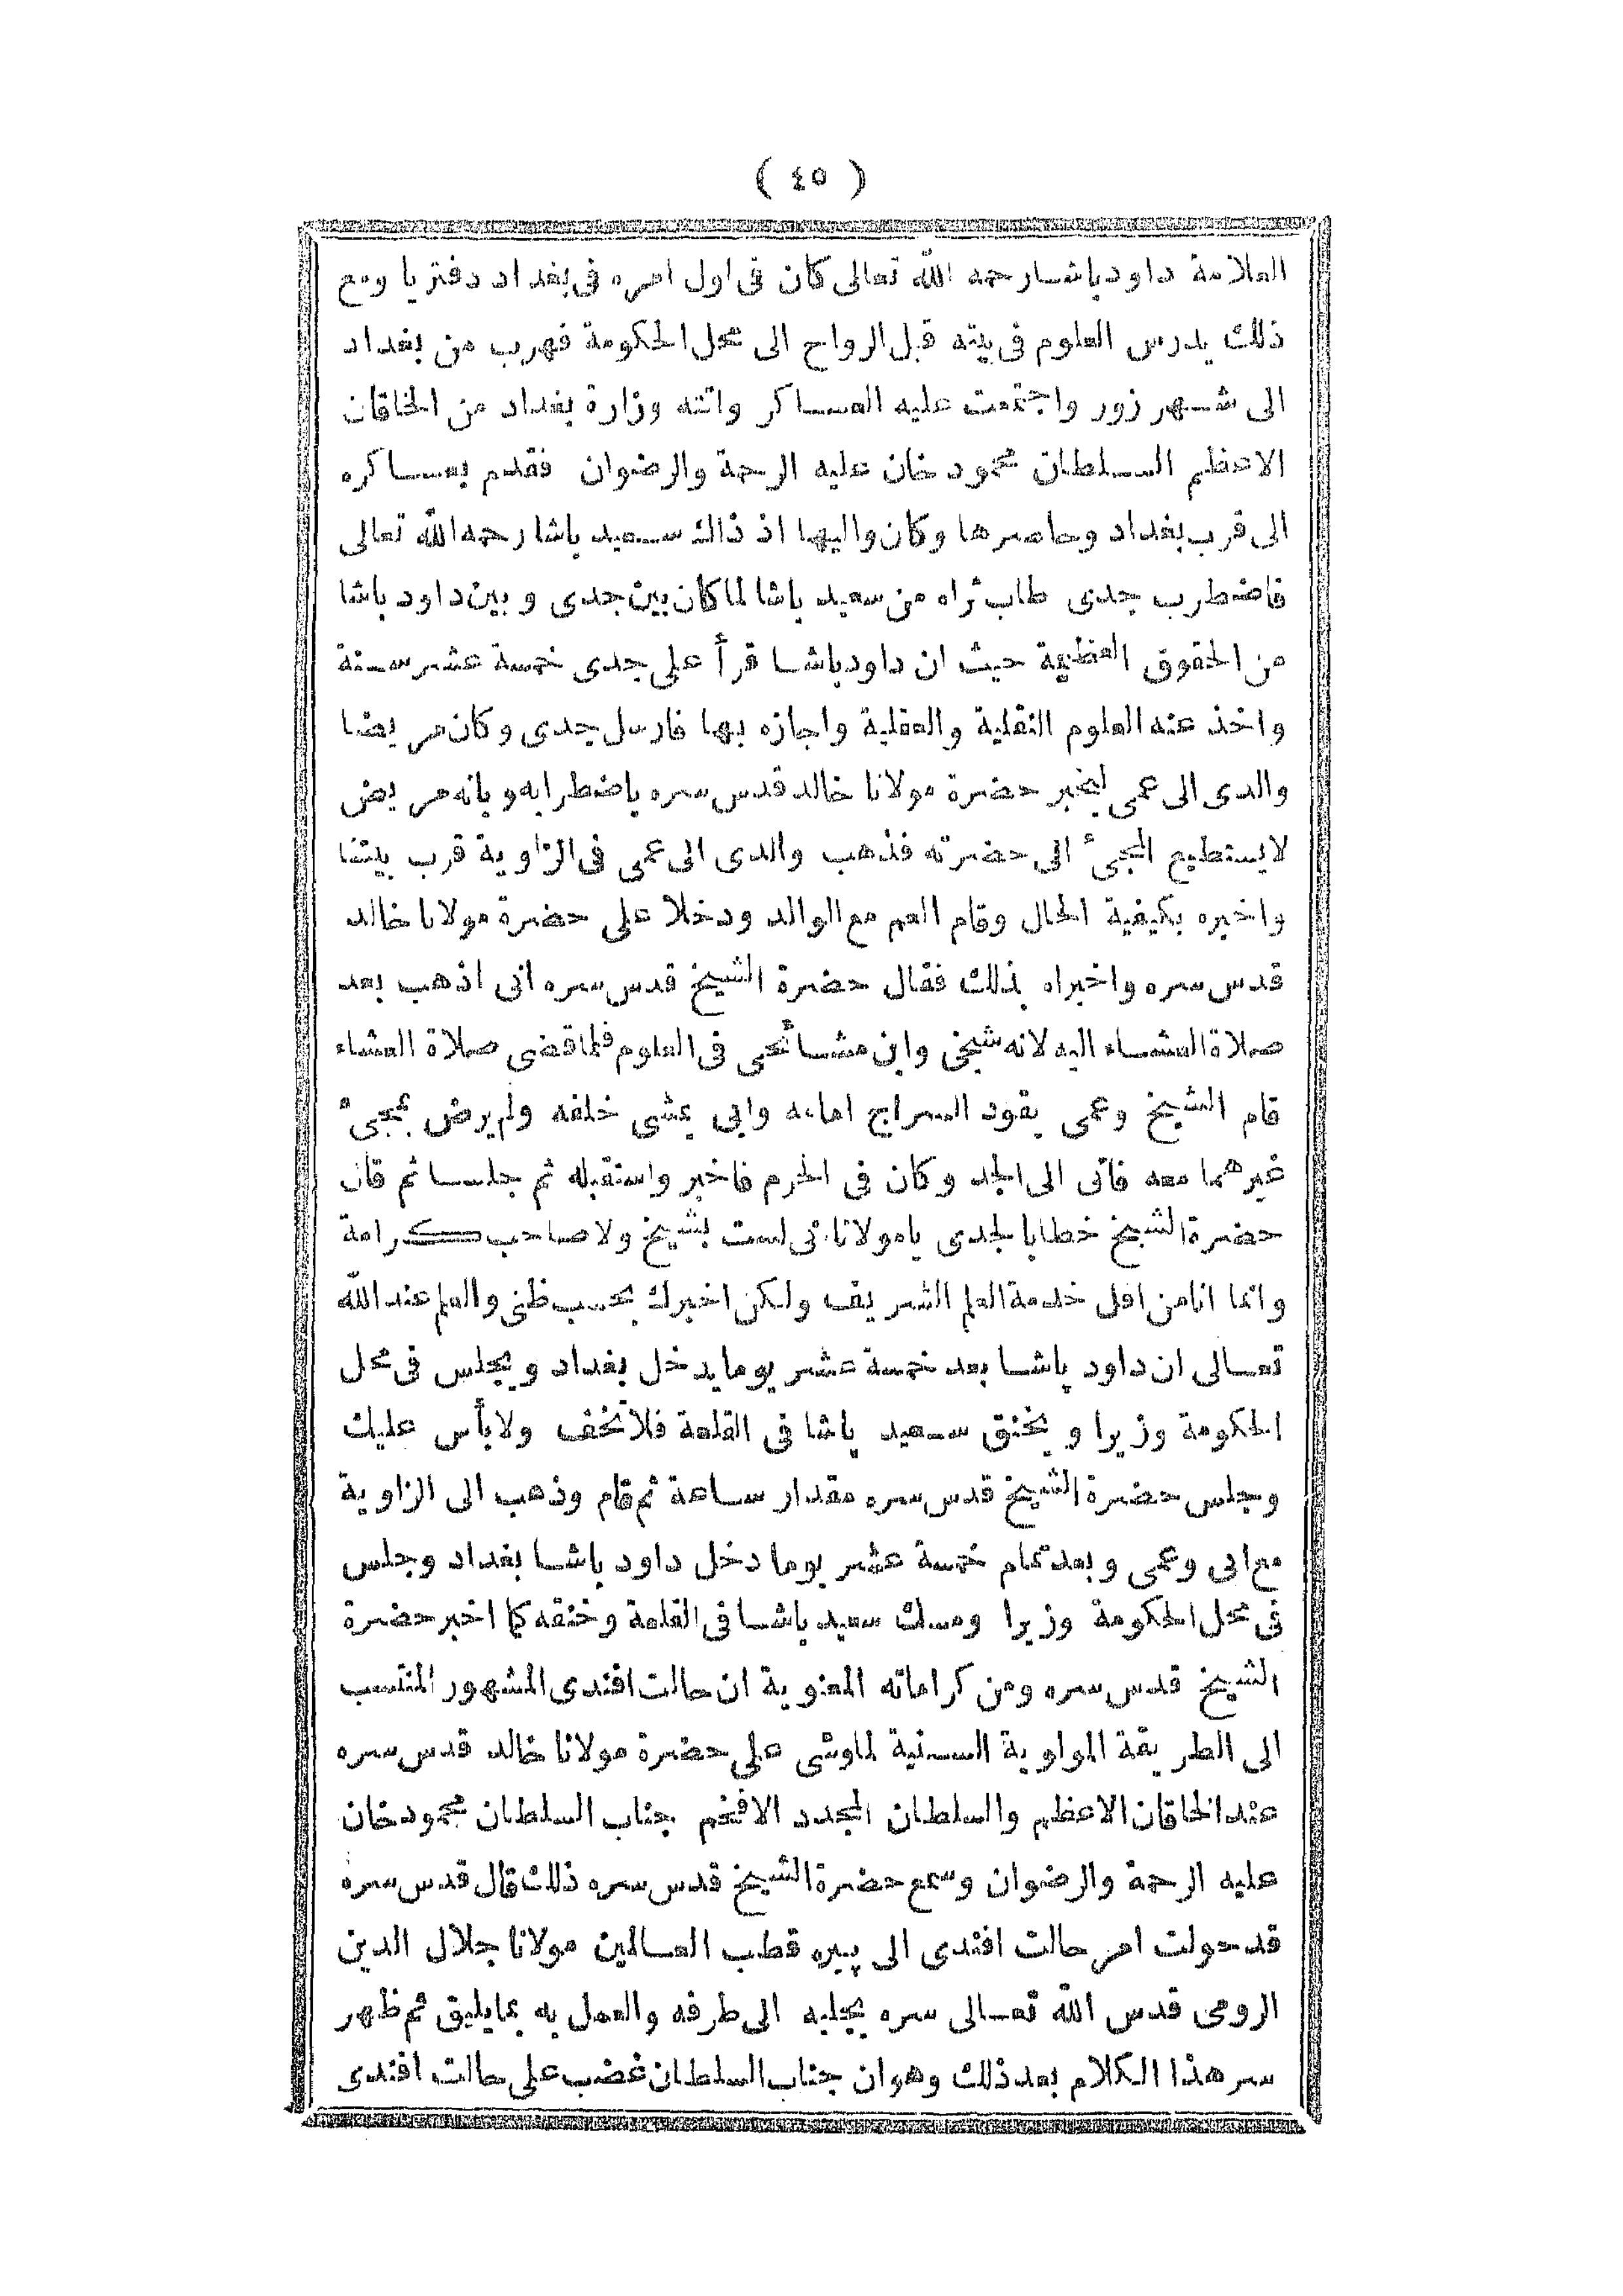 ( ٤٥ )
العلامة داود باشا رحمه الله تعالى كان فى اول امره فى بغداد دفتريا ومع
ذلك يدرس العلوم فى بيته قبل الرواح الى محل الحكومة فهرب من بغداد
الى شهر زور واجتمعت عليه العساكر واتته وزارة بغداد من الخاقان
الاعظم السلطان محمود خان عليه الرحمة والرضوان فقدم بعساكره
الى قرب بغداد وحاصرها وكان واليها اذ ذاك سعيد باشا رحمه الله تعالى
فاضطرب جدى طاب ثراه من سعيد باشا لما كان بين جدى وبين داود باشا
من الحقوق العظيمة حيث ان داود باشا قرأ على جدى خمسة عشر سنة
واخذ عنه العلوم النقلية والعقلية واجازه بها فارسل جدى وكان مريضا
والدى الى عمى ليخبر حضرة مولانا خالد قدس سره باضطرابه وبانه مريض
لا يستطيع المجئ الى حضرته فذهب والدى الى عمى فى الزاوية قرب بيتنا
واخبره بكيفية الحال وقام العم مع الوالد ودخلا على حضرة مولانا خالد
قدس سره واخبراه بذلك فقال حضرة الشيخ قدس سره انى اذهب بعد
صلاة العشاء اليه لانه شيخى وابن مشائخى فى العلوم فلما قضى صلاة العشاء
قام الشيخ وعمى يقود السراج امامه وابى يمشى خلفه ولم يرض بمجئ
غيرهما معه فاتى الى الجد وكان فى الحرم فاخبر واستقبله ثم جلسا ثم قال
حضرة الشيخ خطابا لجدى يا مولانا انى لست بشيخ ولا صاحب كرامة
وانما انا من اقل خدمة العلم الشريف ولكن اخبرك بحسب ظنى والعلم عند الله
تعالى ان داود باشا بعد خمسة عشر يوما يدخل بغداد ويجلس فى محل
الحكومة وزيرا ويخنق سعيد باشا فى القلعة فلا تخف ولا بأس عليك
وجلس حضرة الشيخ قدس سره مقدار ساعة ثم قام وذهب الى الزاوية
مع ابى وعمى وبعد تمام خمسة عشر يوما دخل داود باشا بغداد وجلس
فى محل الحكومة وزيرا ومسك سعيد باشا فى القلعة وخنقه كما اخبر حضرة
الشيخ قدس سره ومن كراماته المعنوية ان حالت افندى المشهور المنتسب
الى الطريقة المولوية السنية لما وشى على حضرة مولانا خالد قدس سره
عند الخاقان الاعظم والسلطان المجدد الافخم جناب السلطان محمود خان
عليه الرحمة والرضوان وسمع حضرة الشيخ قدس سره ذلك قال قدس سره
قد حولت امر حالت افندى الى پيره قطب العالمين مولانا جلال الدين
الرومى قدس الله تعالى سره بجلبه الى طرفه والعمل به بما يليق ثم ظهر
سر هذا الكلام بعد ذلك وهو ان جناب السلطان غضب على حالت افندى